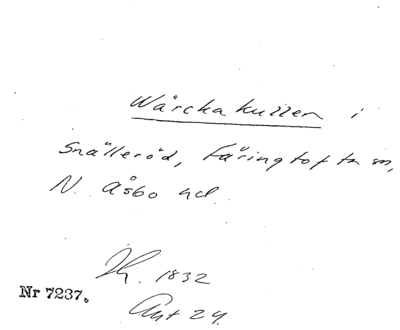 Wärckakullen i
Snälleröd, Färingtofta sn,
N. Åsbo hd.
Th. 1832
Nr 7237.
Ant 24.